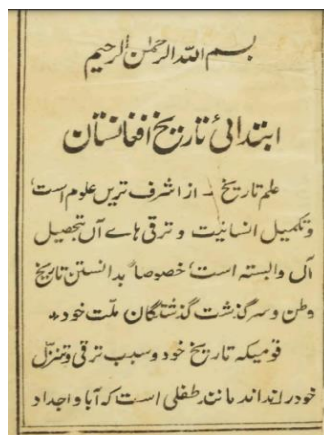 بسم الله الرحمٰن الرحیم
ابتدائی تاریخ افغانستان
علم تاریخ - از اشرف ترین علوم است،
وتکمیل انسانیت و ترقی ہاے آں بتحصیل
آں وابستہ است، خصوصاً بدانستن تاریخ
وطن و سرگذشت گذشتگان ملّت خود +
قومیکہ تاریخ خود و سبب ترقی و تنزل
خود نداند مانند طفلی است کہ آبا و اجداد